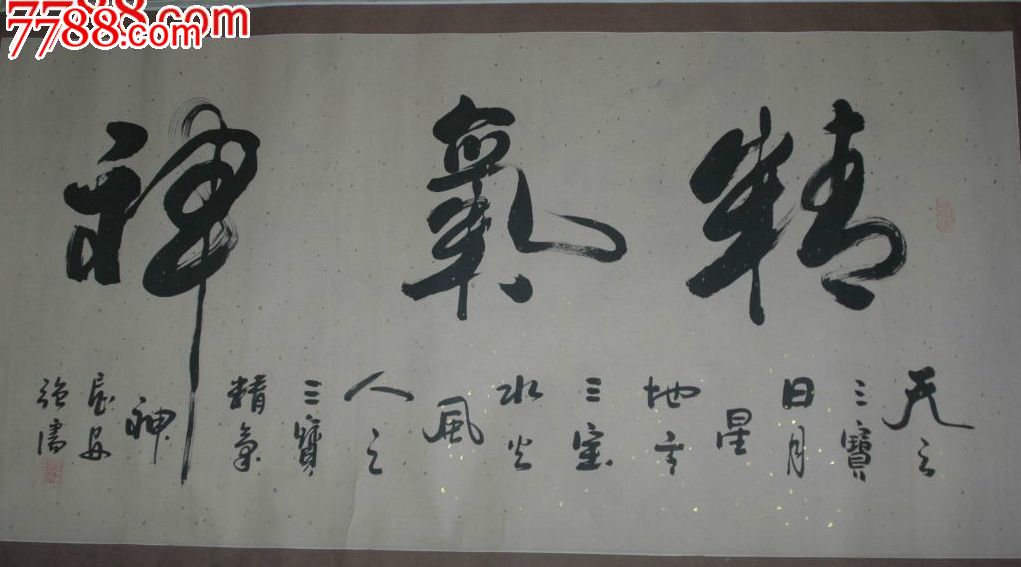 7788.com
7788.com
精氣神
天之
三寶
日月
星
地之
三寶
水火
風
人之
三寶
精氣
神